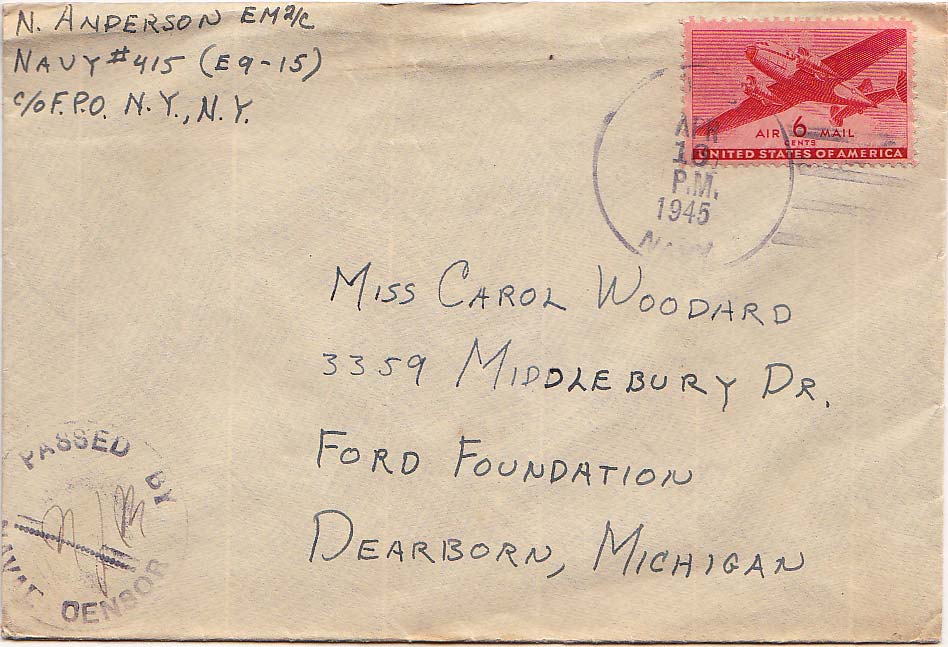 N. ANDERSON EM 2/C
NAVY #415 (E9-15)
C/O F.P.O. N.Y., N.Y.
AIR 6 MAIL
CENTS
UNITED STATES OF AMERICA
APR
P.M.
1945
NAVY
MISS CAROL WOODARD
3359 MIDDLEBURY DR.
FORD FOUNDATION
DEARBORN, MICHIGAN
PASSED BY
NAVAL CENSOR